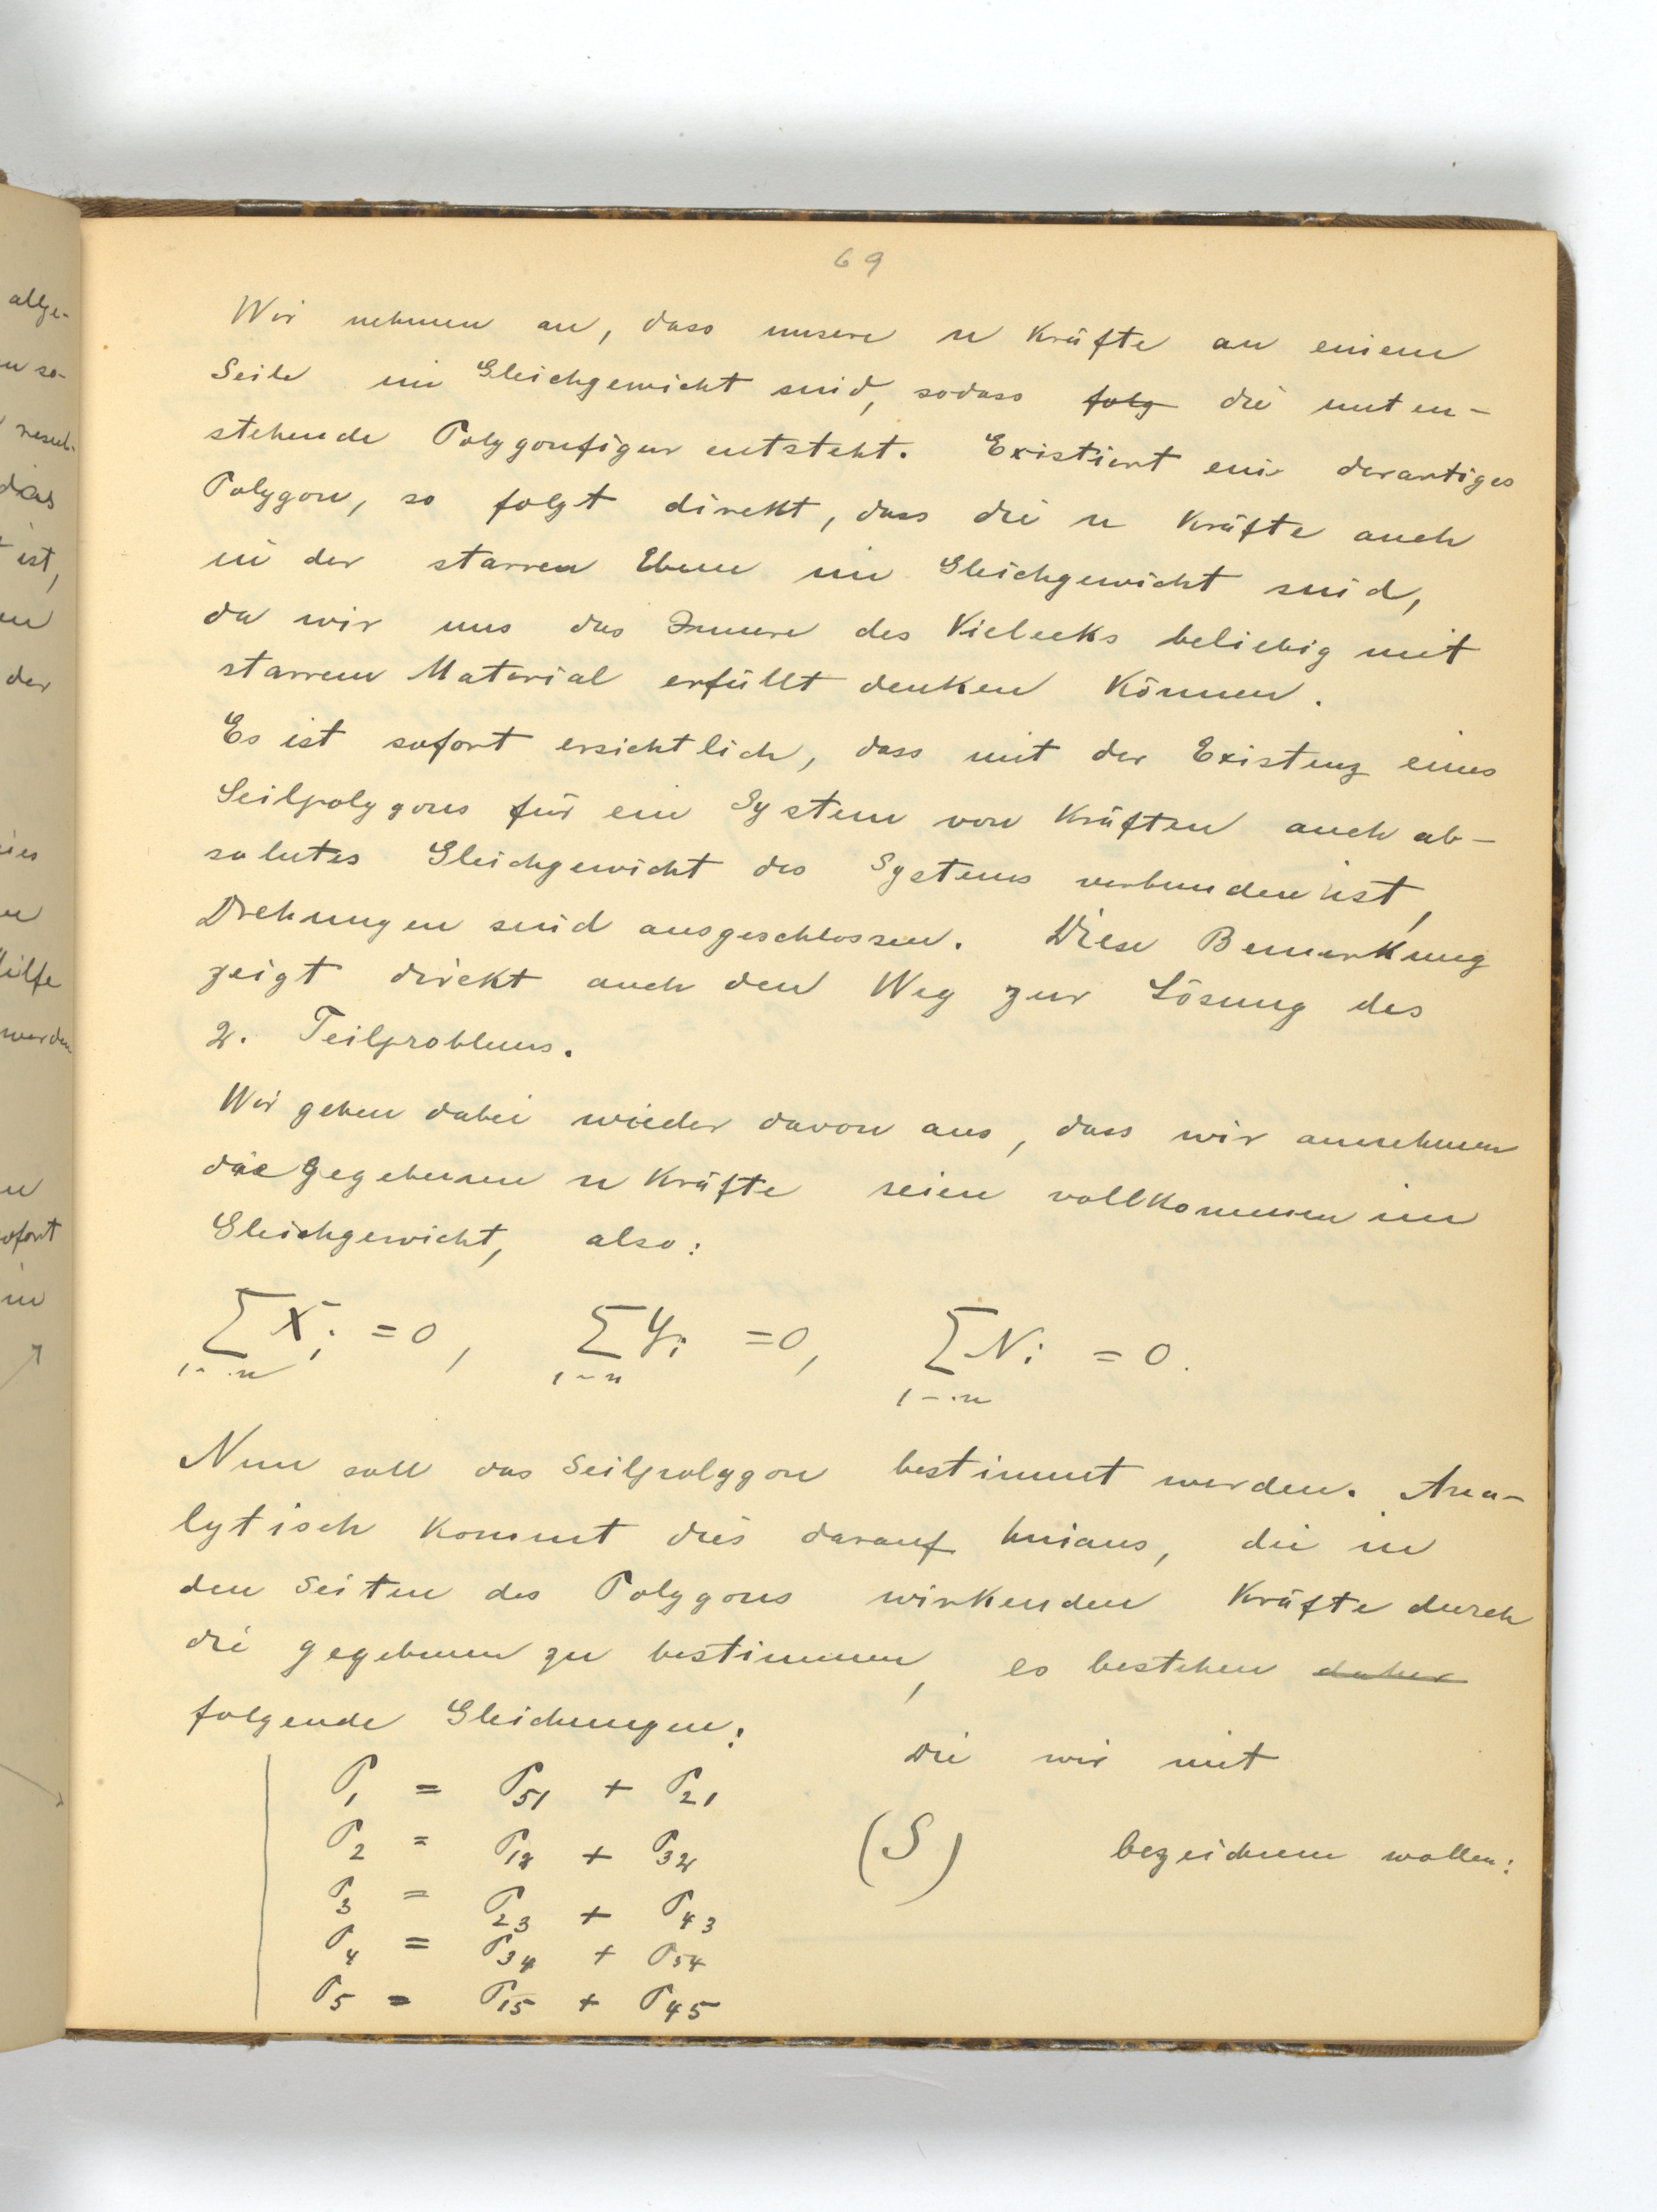 allge-
n so-
result-
das
ist,
der
Hilfe
werden
sofort
in
69
Wir nehmen an, dass unsere n Kräfte an einem
Seile im Gleichgewicht sind, sodass folg die unten-
stehende Polygonfigur entsteht. Existiert ein derartiges
Polygon, so folgt direkt, dass die n Kräfte auch
in der starren Ebene im Gleichgewicht sind,
da wir uns das Innere des Vielecks beliebig mit
starrem Material erfüllt denken können.
Es ist sofort ersichtlich, dass mit der Existenz eines
Seilpolygons für ein System von Kräften auch ab-
solutes Gleichgewicht des Systems verbunden ist,
Drehungen sind ausgeschlossen. Diese Bemerkung
zeigt direkt auch den Weg zur Lösung des
2. Teilproblems.
Wir gehen dabei wieder davon aus, dass wir annehmen
die gegebenen n Kräfte seien vollkommen im
Gleichgewicht, also:
∑ Xi = 0, ∑ Yi = 0, ∑ Ni = 0.
1-·n 1-n 1-·n
Nun soll das Seilpolygon bestimmt werden. Ana-
lytisch kommt dies darauf hinaus, die in
den Seiten des Polygons wirkenden Kräfte durch
die gegebenen zu bestimmen, es bestehen daher
folgende Gleichungen:
Die wir mit
P1 = P51 + P21
P2 = P12 + P32 (S) bezeichnen wollen:
P3 = P23 + P43
P4 = P34 + P54
P5 = P15 + P45